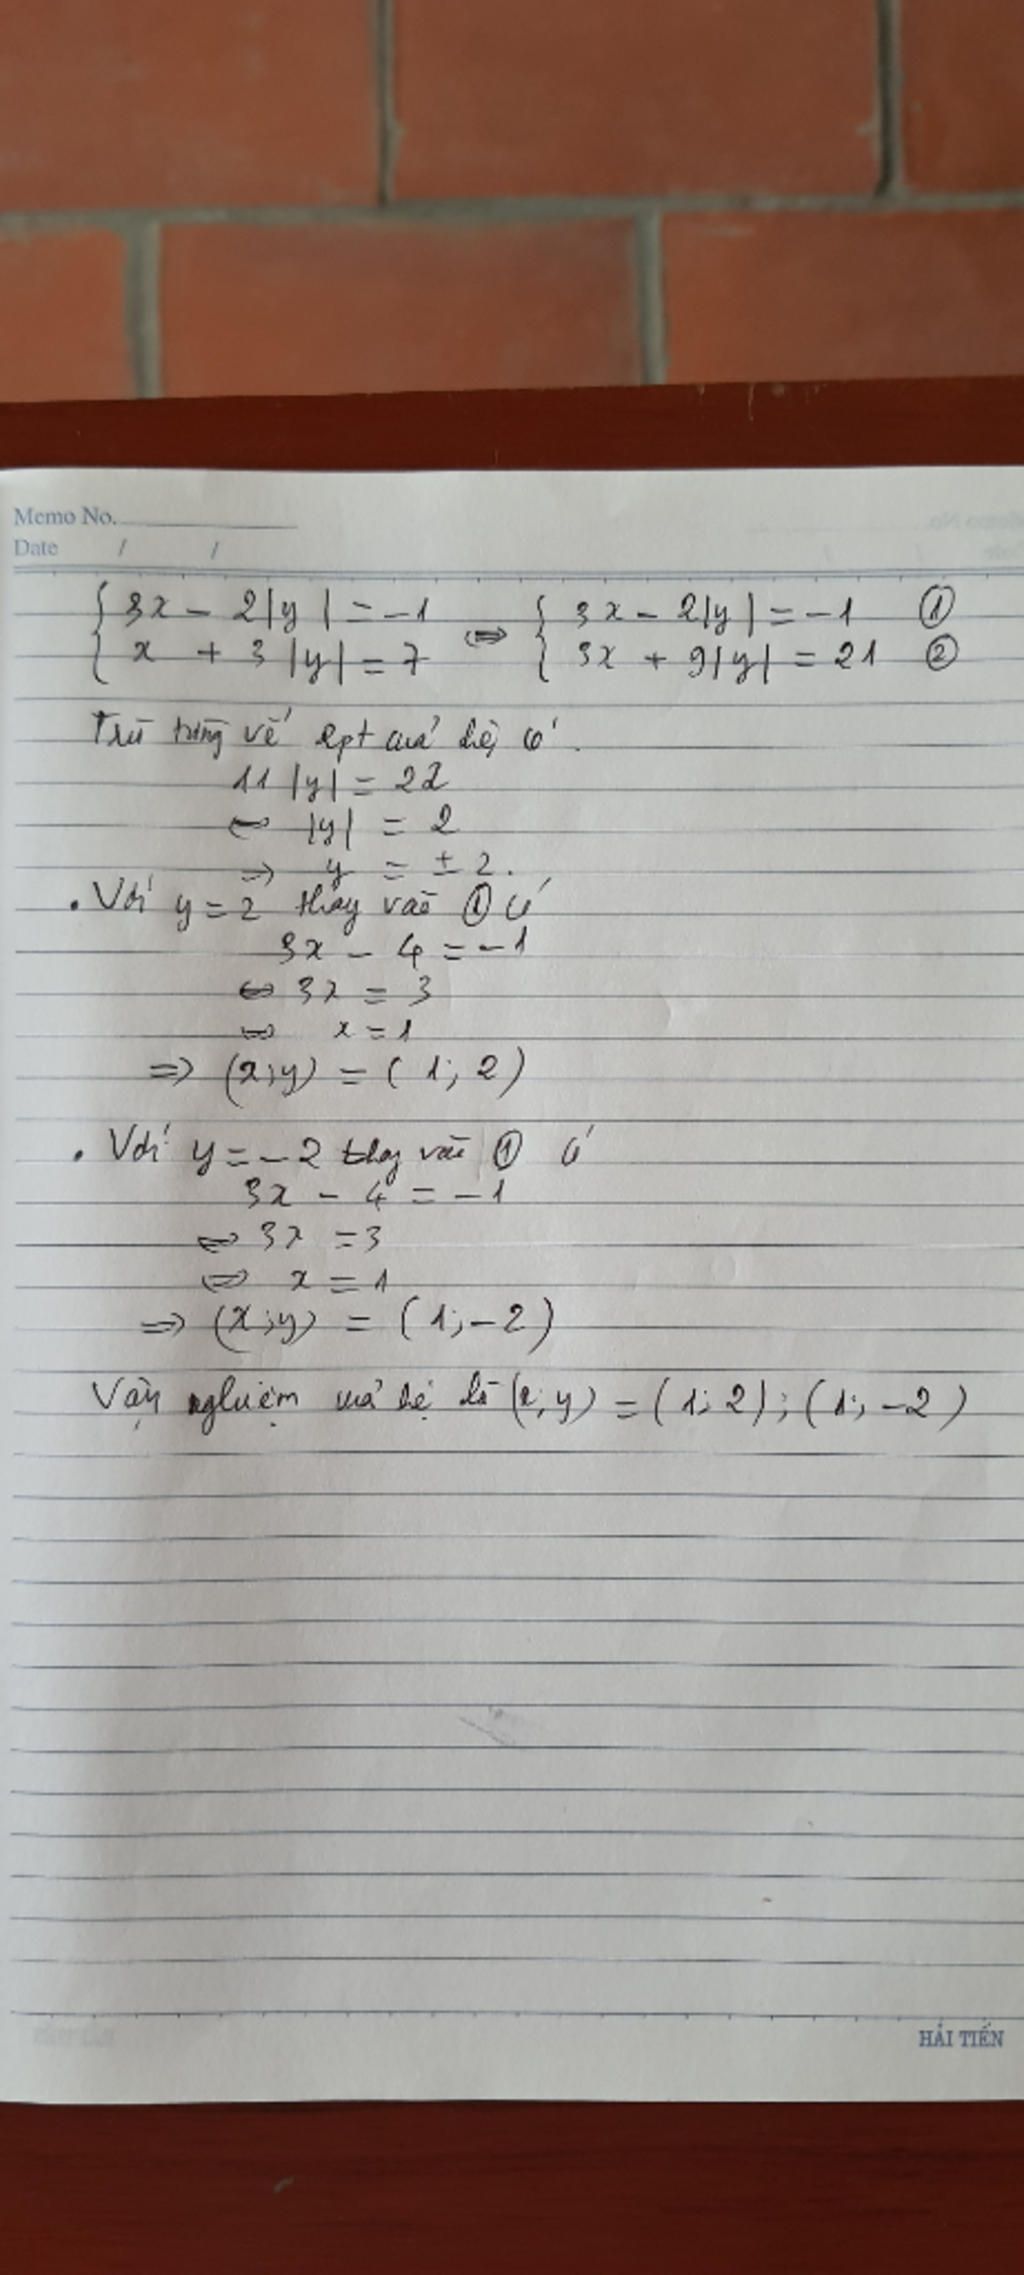 Memo No.
Date / /
{ 3x - 2|y| = -1 ⇔ { 3x - 2|y| = -1 ①
{ x + 3|y| = 7 { 3x + 9|y| = 21 ②
Trừ từng vế 2pt của hệ, có
11|y| = 22
⇔ |y| = 2
⇒ y = ± 2.
. Với y = 2 thay vào ① có
3x - 4 = -1
⇔ 3x = 3
⇔ x = 1
⇒ (x;y) = (1; 2)
. Với y = -2 thay vào ① có
3x - 4 = -1
⇔ 3x = 3
⇔ x = 1
⇒ (x;y) = (1; -2)
Vậy nghiệm của hệ là (x; y) = (1; 2); (1; -2)
HẢI TIẾN